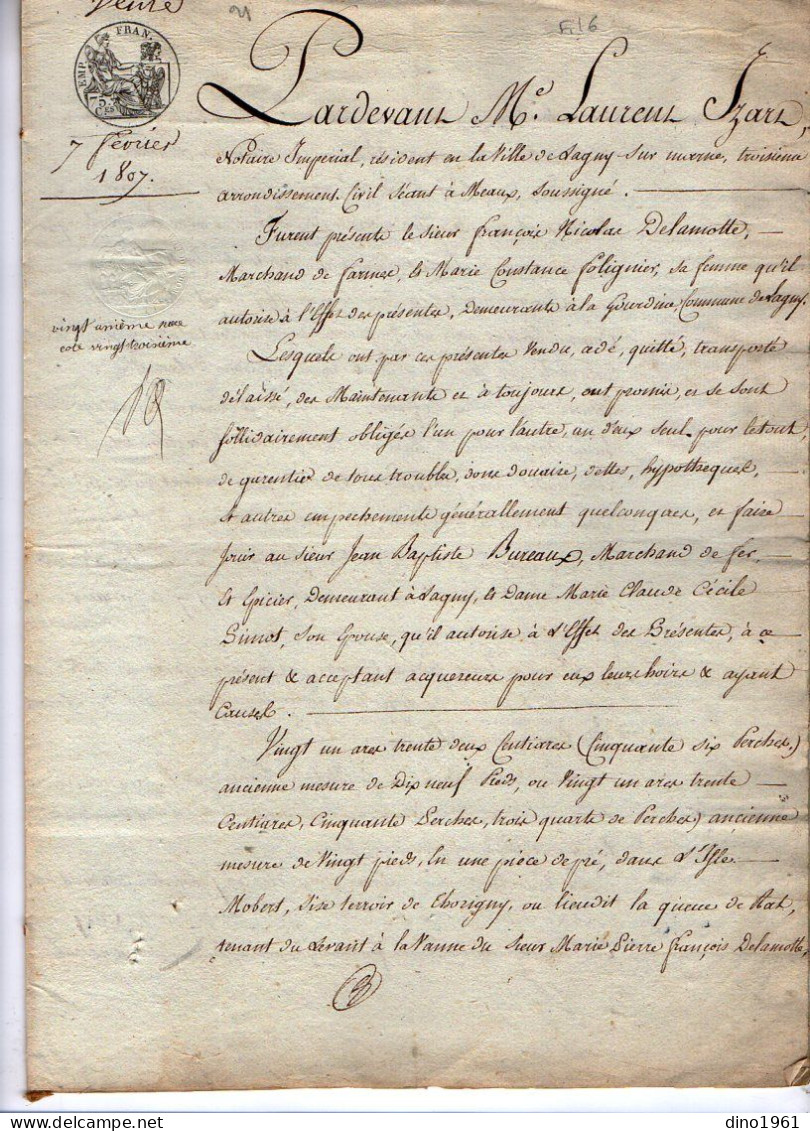 Vente
21
F. 16
EMP. FRAN.
75
Ces
7 février
1807.
Pardevant Me. Laurent Izart,
Notaire Imperial, résident en la Ville de Lagny sur marne, troisieme
arrondissement Civil Séant à Meaux, Soussigné.
Furent présents le sieur françois Nicolas Delamotte,
Marchand de farines, et Marie Constance folignier, sa femme qu'il
autorise à l'Effet des présentes, Demeurants à la Gourdine, Commune de Lagny.
vingt unième
cote vingt troisieme
Lesquels ont par ces présentes Vendu, cédé, quitté, transporté
délaissé, des Maintenant et à toujours, ont promis, et se sont
sollidairement obligés l'un pour l'autre, un d'eux seul pour le tout,
de garentir de tous troubles, dons douaire, dettes, hypotheques,
et autres empechements générallement quelconques, et faire
Jouir au sieur Jean Baptiste Bureaux, Marchand de fer
et Epicier, Demeurant à Lagny, et Dame Marie Claude Cécile
Simot, son Epouse, qu'il autorise à l'Effet des Présentes, à ce
présent & acceptant acquereurs pour eux leurs hoirs & ayant
Causes.
Vingt un ares trente deux Centiares (Cinquante six Perches,)
ancienne mesure de Dix neuf Pieds, ou Vingt un ares trente
Centiares, Cinquante Perches, trois quarts de Perches) ancienne
mesure de Vingt pieds, En une pièce de pré, dans l'Isle
Mobert, sise terroir de Thorigny, ou lieudit la queue de Rat,
tenant du Levant à la Vanne du sieur Marie Pierre françois Delamotte,
dino1961